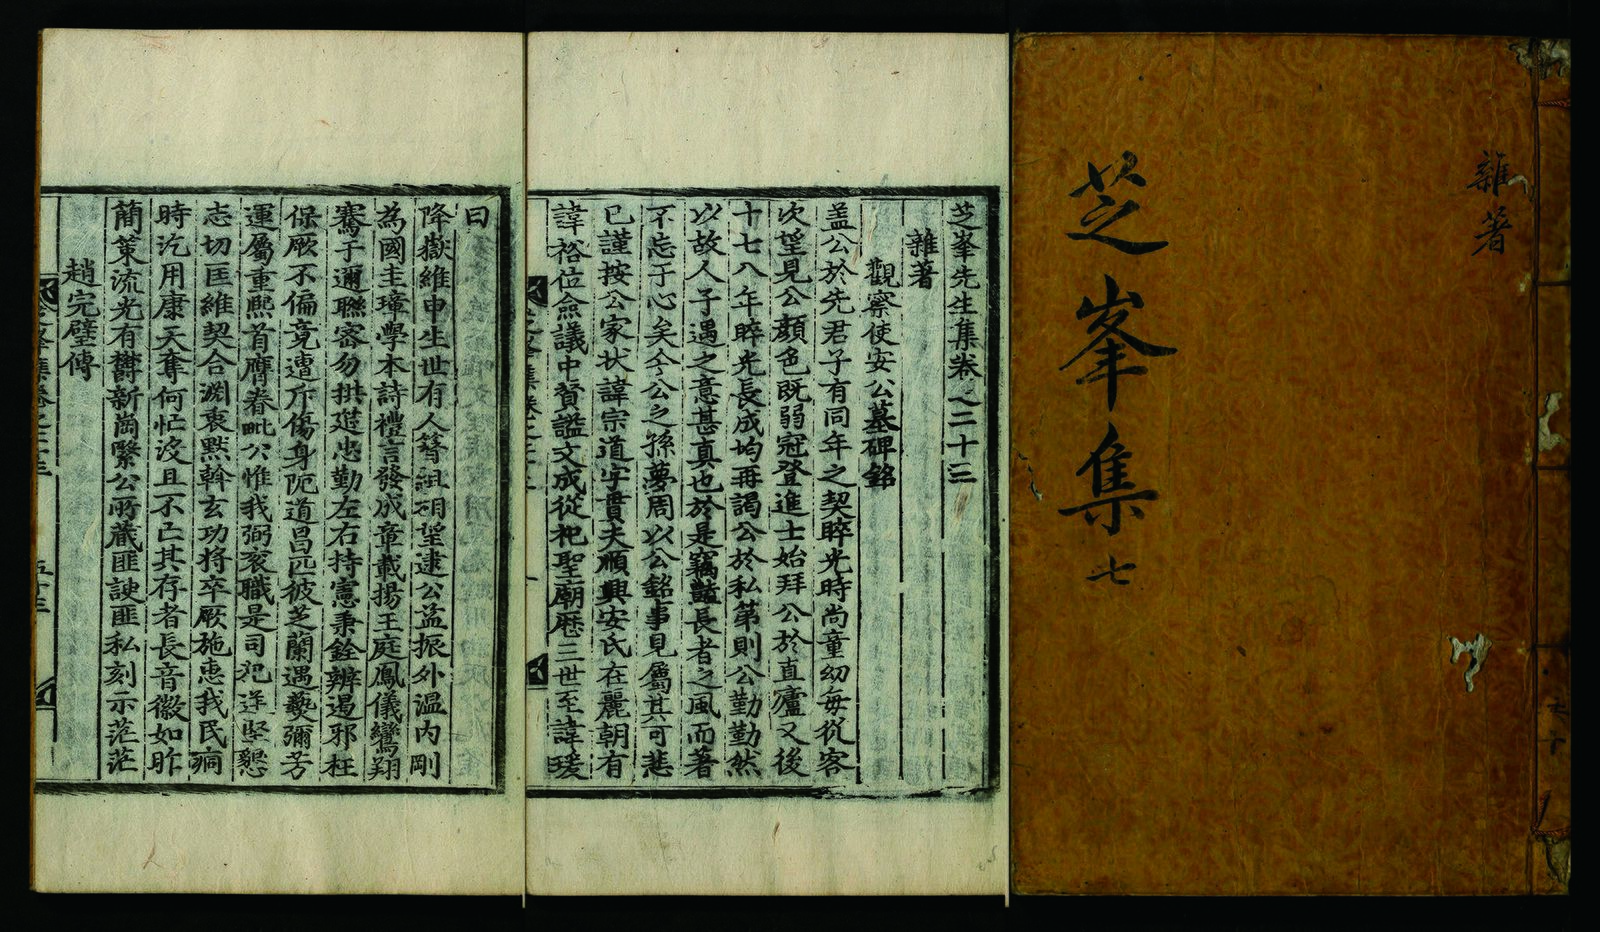 雜著
芝峯集 七
芝峯先生集卷之二十三
雜著
觀察使安公墓碑銘
盖公於先君子有同年之契睟光時尚童幼每從容
次望見公顏色既弱冠登進士始拜公於直廬又後
十七八年睟光長成均再謁公於私第則公勤勤然
以故人子遇之意甚真也於是竊豔長者之風而著
不忘于心矣今公之孫夢周以公銘事見屬其可悲
已謹按公家狀諱宗道字貫夫順興安氏在麗朝有
諱裕位僉議中贊謚文成從祀聖廟歷三世至諱瑗
曰
降嶽維申生世有人簪組相望逮公孟振外溫內剛
為國圭璋學本詩禮言發成章載揚王庭鳳儀鸞翔
騫于邇聯密勿拱莚忠勤左右持憲秉銓辨遏邪枉
保厥不偏竟遭斥傷身阨道昌匹彼芝蘭遇爇彌芳
運屬重熙首膺眷毗公惟我弼袞職是司犯逆堅懇
志切匡維契合淵衷默斡玄功將卒厥施惠我民痌
時汔用康天奪何忙沒且不亡其存者長音徽如昨
蕑策流光有欝新崗繄公所藏匪諛匪私刻示茫茫
趙完璧傳
五十三